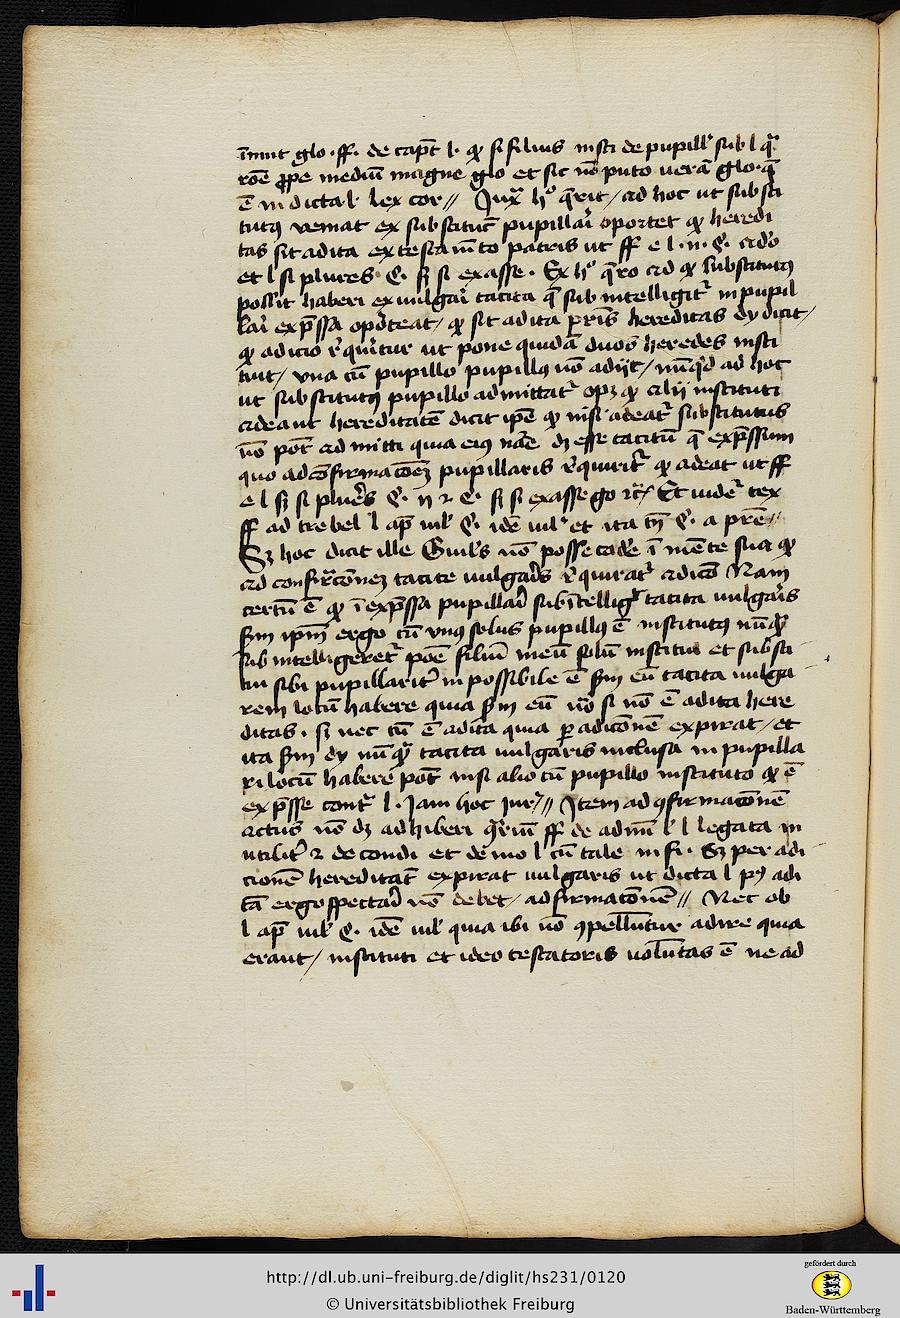 innuit glo. ff. de capt̄ l. qͥ si filius insti de pupill' sub l q̄
rōe ꝓpe mediū magne glo et sic nō puto verā glo. q̄
ē in dicta l. lex cor // Juxᵃ hᵒ q̄rit / ad hoc ut substi
tutꝰ veniat ex substitut̄ pupillaͥ oportet qͥ heredi
tas sit adita ex testamͭto patris ut ff e l. ii. §. ado
et l si plures §. sꝫ si ex asse. Ex hᵒ q̄ro ad qͥ substitutꝰ
possit haberi ex vulgaͥ tacita q̄ sub intelligitᷣ in pupil
laͥ exp̄ssa oporteat / qͥ sit adita pris hereditas dy dicit /
qͥ adicio rͥquiritur ut pone quidā duos heredes insti
tuit / una cū pupillo pupillꝰ nō adijt / nūqͥd ad hoc
ut substitutꝰ pupillo admittatᷣ opꝫ qͥ alij instituti
adeant hereditatē dicit ipē qͥ nisi adeatᷣ substitutus
nō pōt admitti quia eius nāe dꝫ esse tacitū q̄ exp̄ssum
quo ad cōfirmacōeꝫ pupillaris rͥquiritᷣ qͥ adeat ut ff
e l sꝫ si plures §. ii ⁊ §. sꝫ si ex asse go ꝛc̄ / Et videᷣ tex
ff ad trebel l ap̄ iul' §. idē iul' et ita tn̄ §. a prē //
Sꝫ hoc dicit ille Guil's nō posse cadere ī mēte sua qͥ
ad confirᷣcōnez tacite vulgaͥs rͥquiratᷣ adicō Nam
certū ē qͥ ī exp̄ssa pupillaͥ subītelligᷣ tacita vulgaͥs
scm ipm̄ ergo cū unꝰ solus pupillꝰ ē institutꝰ nūqͣ
sub intelligeretᷣ pōe filiū meū solū institui et substi
tui sibi pupillaritᷣ inpossibile ē scm eū tacita vulga
rem locū habere quia scm eū nō si nō ē adita here
ditas. sꝫ nec cū ē adita quia ꝑ adicōnē expirat / et
ita scm dy nūqͣ tacita vulgaris inclusa in pupilla
ri locū habere pōt nisi alio cū pupillo instituto qͥ ē
exp̄sse contᷣ l. Jam hoc jurᷣ // Item ad ꝯfirmacōnē
actus nō dꝫ adhiberi 9riū ff de admi l l legata in
utilitᷣ ⁊ de condi et demo l cū tale in fi. Sꝫ per adi
cionē hereditat̄ expirat vulgaris ut dicta l pꝰ adi
tā ergo spectaͥ nō debet / ad firmacōnē // Nec ob
l ap̄ iul' §. idē iul' quia ibi nō ꝯpelluntur adire quia
erant / instituti et ideo testatoris voluntas ē ne ad
http://dl.ub.uni-freiburg.de/diglit/hs231/0120
© Universitätsbibliothek Freiburg
gefördert durch
Baden-Württemberg